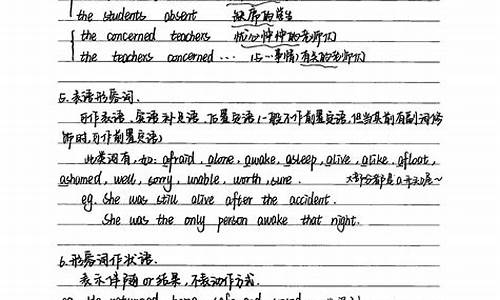 the students absent 缺席的学生
the concerned teachers 忧心忡忡的老师们
the teachers concerned ... (与…事情)有关的老师们
5. 表语形容词.
可作表语、宾语补足语、后置定语(一般不作前置定语,但当其前有副词修
饰时,可作前置定语)
此类词有,如: afraid, alone, awake, asleep, alive, alike, afloat,
ashamed, well, sorry, unable, worth, sure. 大部分都是a开头的~
eg. She was still alive after the accident.
She was the only person awake that night.
6. 形容词作状语.
表示伴随or结果,不表动作方式.